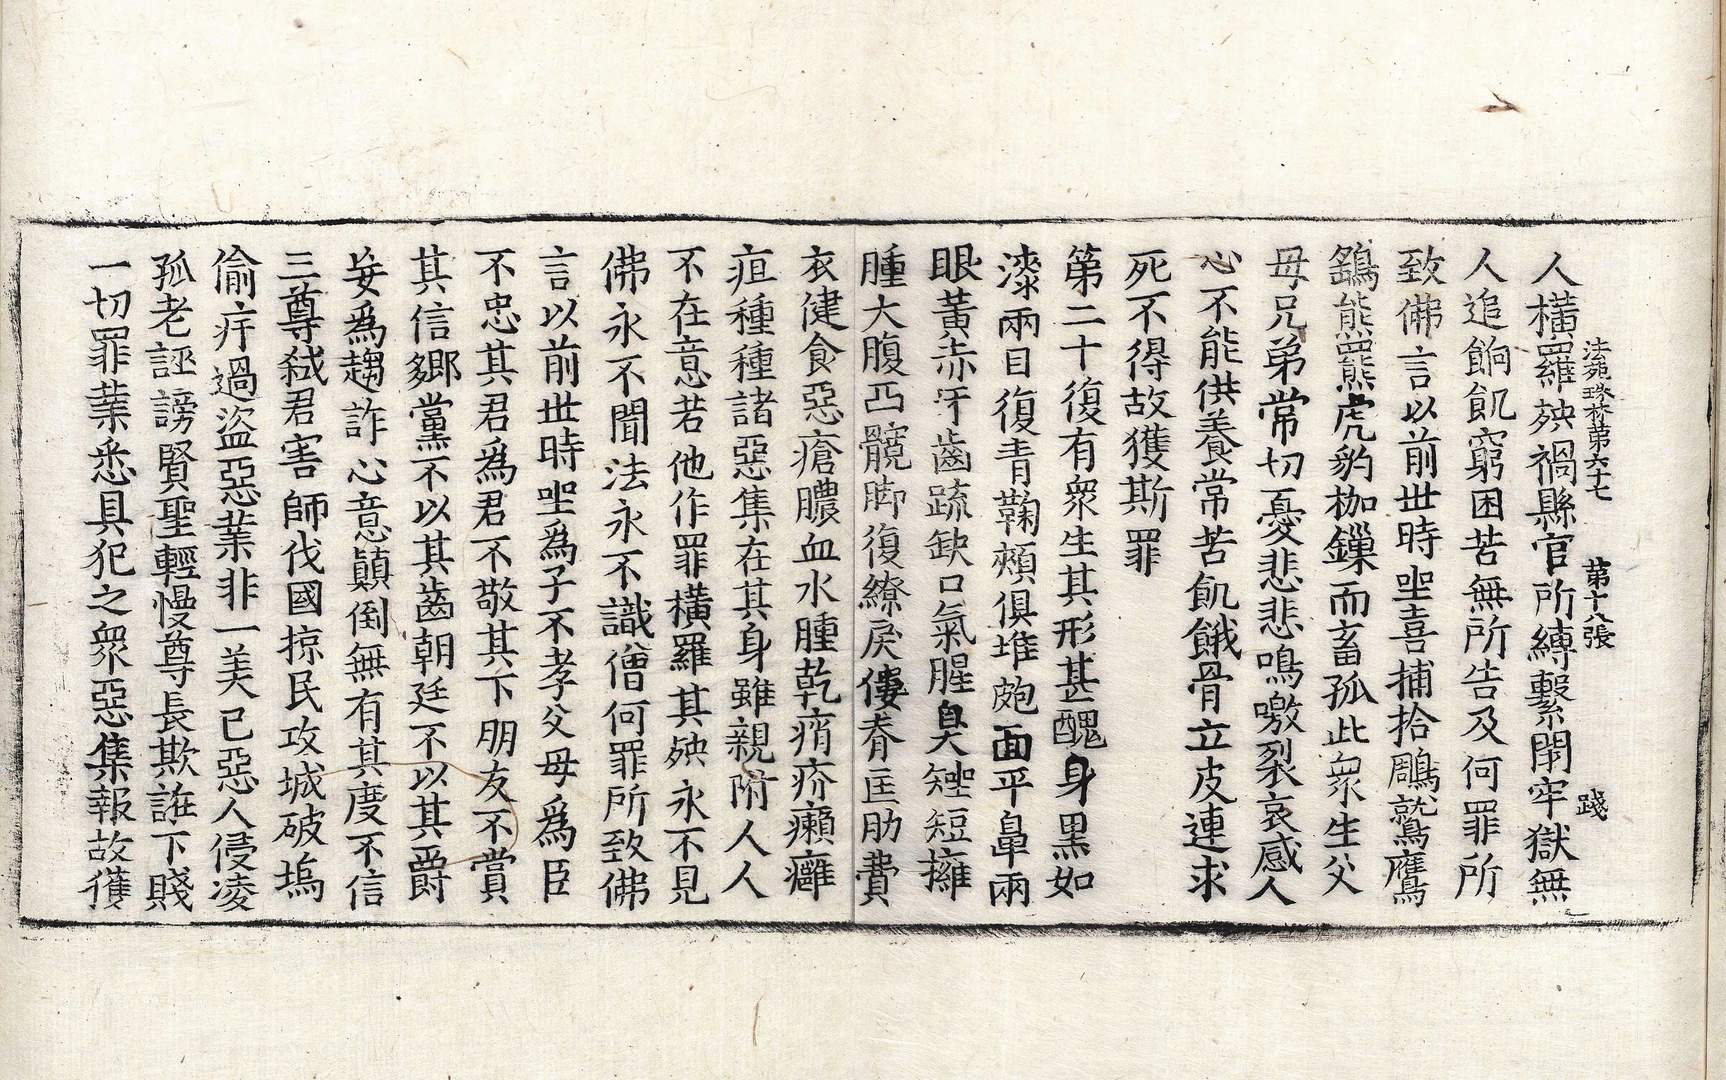 法苑珠林第六十七 第十八張 踐
人橫羅殃禍縣官所縛繫閉牢獄無
人追餉飢窮困苦無所告及何罪所
致佛言以前世時坐喜捕拾鵰鷲鷹
鷂熊羆虎豹枷鏁而畜孤此衆生父
母兄弟常切憂悲悲鳴噭裂哀感人
心不能供養常苦飢餓骨立皮連求
死不得故獲斯罪
第二十復有衆生其形甚醜身黑如
漆兩目復青鞠頰俱堆皰面平鼻兩
眼黃赤牙齒踈缺口氣腥臭矬短擁
腫大腹凸髖脚復繚戾僂脊匡肋費
衣健食惡瘡膿血水腫乾痟疥癩癰
疽種種諸惡集在其身雖親附人人
不在意若他作罪橫羅其殃永不見
佛永不聞法永不識僧何罪所致佛
言以前世時坐爲子不孝父母爲臣
不忠其君爲君不敬其下朋友不賞
其信鄉黨不以其齒朝廷不以其爵
妄爲趨詐心意顛倒無有其度不信
三尊弒君害師伐國掠民攻城破塢
偷𡨥過盜惡業非一美己惡人侵凌
孤老誣謗賢聖輕慢尊長欺誑下賤
一切罪業悉具犯之衆惡集報故獲